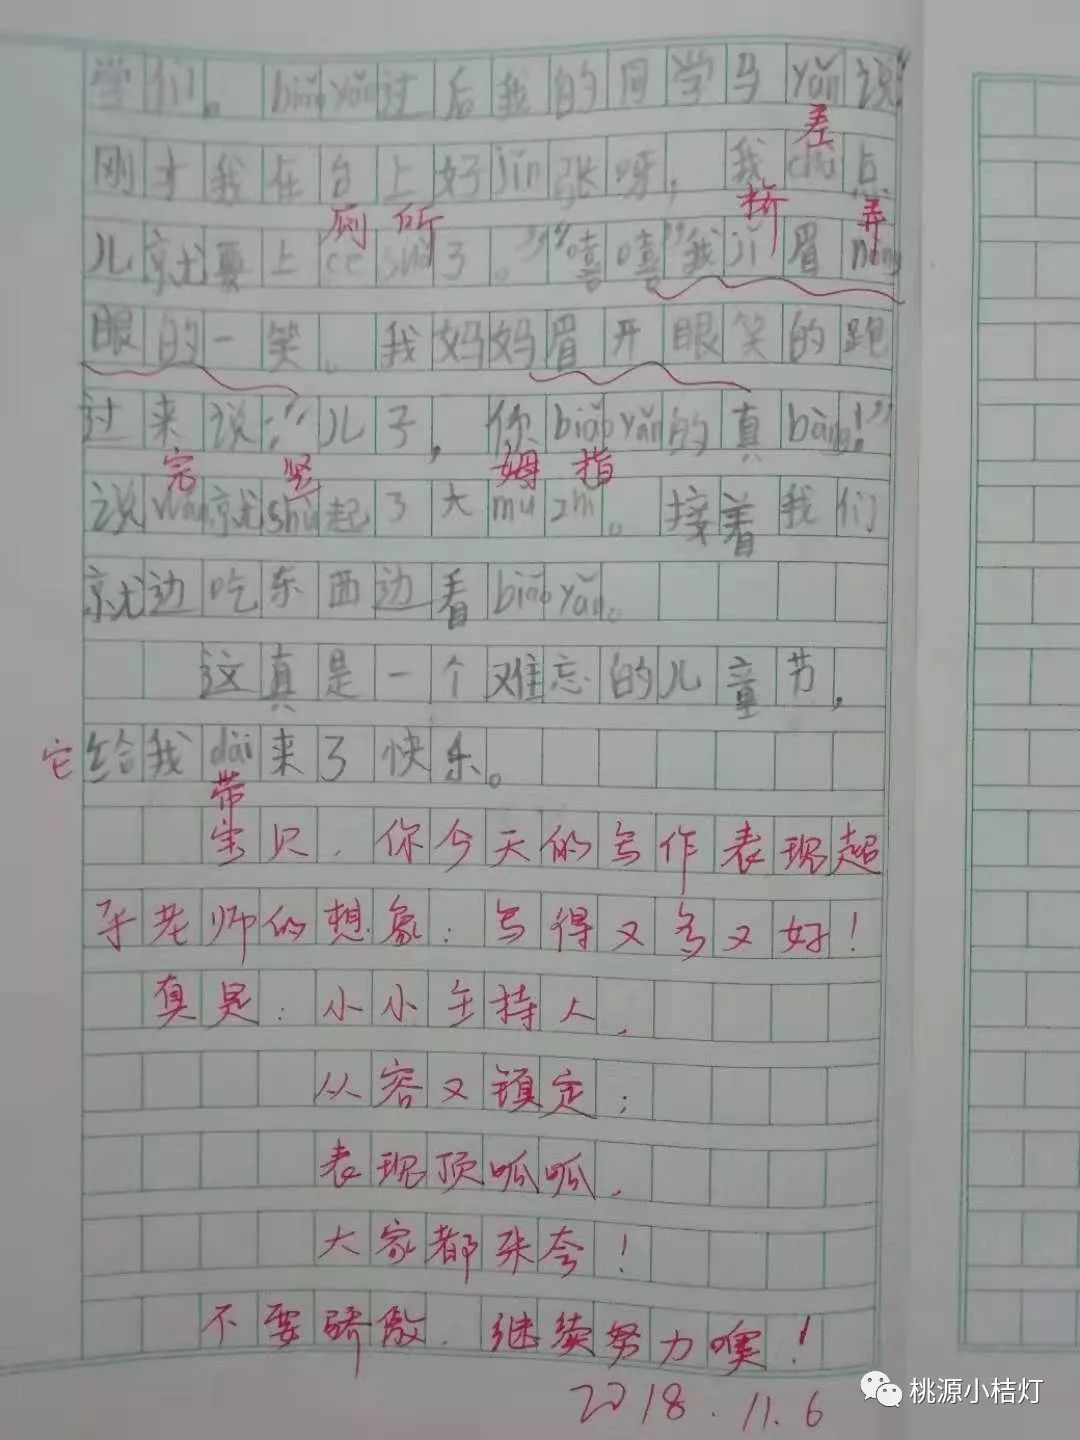 学们。biǎo yǎn过后我的同学马yán说“
差
刚才我在台上好jǐn张呀，我chà点
厕所 挤 弄
儿就要上cè suǒ了。”“嘻嘻”我jǐ眉nòng
眼的一笑。我妈妈眉开眼笑的跑
过来说：“儿子，你biǎo yǎn的真bàng！”
完 竖 姆指
说wán就shù起了大mu zhǐ。接着我们
就边吃东西边看biǎo yǎn。
这真是一个难忘的儿童节，
它给我dài来了快乐。
带
宝贝，你今天的写作表现超
乎老师的想象：写得又多又好！
真是：小小主持人，
从容又镇定；
表现顶呱呱，
大家都来夸！
不要骄傲，继续努力噢！
2018.11.6
桃源小桔灯